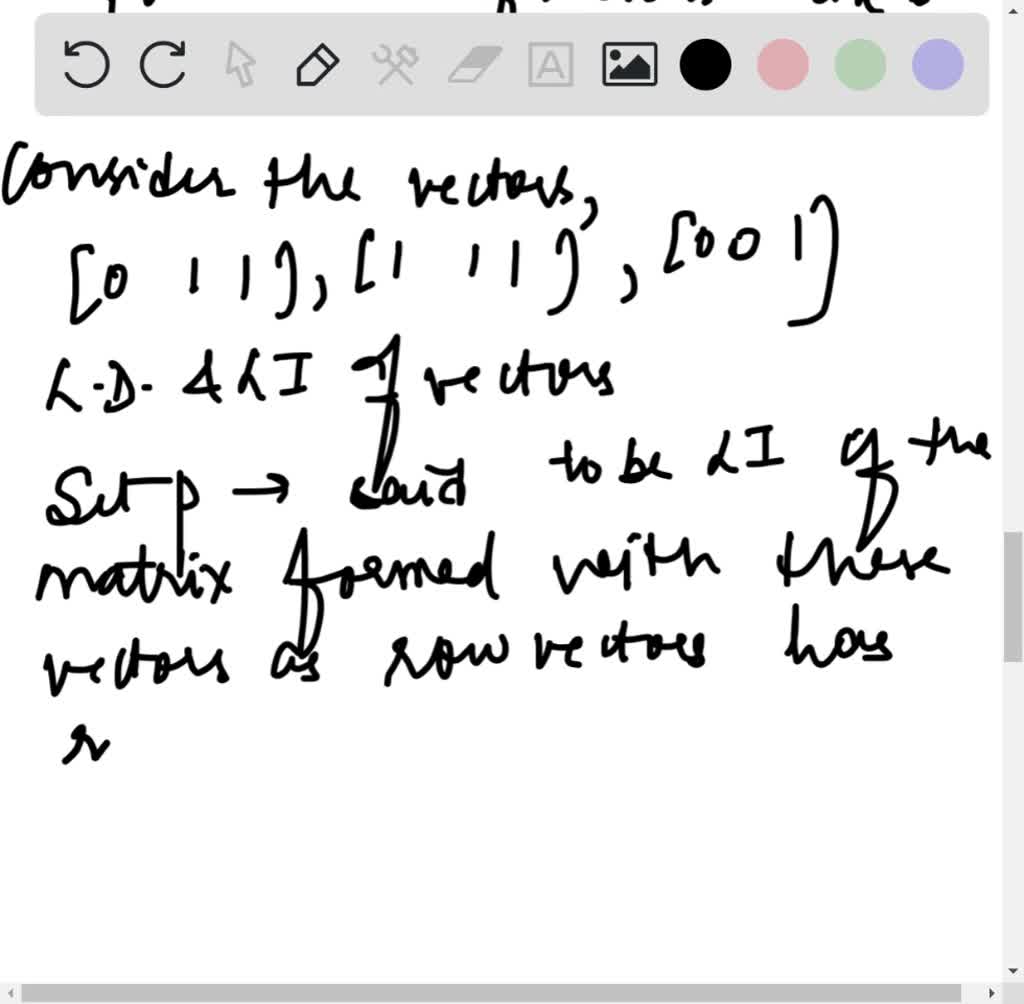 A
Consider the vectors,
[0 1 1], [1 1 1], [0 0 1]
L.D. & LI of vectors
Set p → said to be LI if the
matrix formed with these
vectors as row vectors has
r